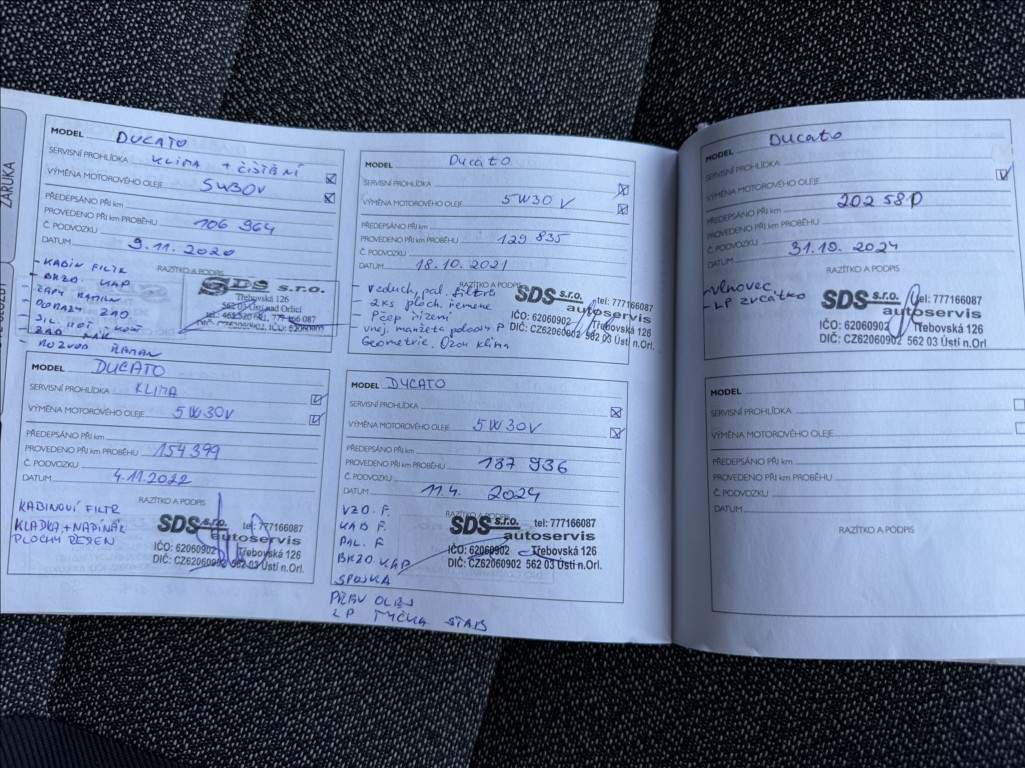 ZÁRUKA
MODEL DUCATO
SERVISNÍ PROHLÍDKA KLIMA + ČIŠTĚNÍ
VÝMĚNA MOTOROVÉHO OLEJE 5W30V
PŘEDEPSÁNO PŘI km
PROVEDENO PŘI km PROBĚHU 106 964
Č. PODVOZKU
DATUM 9.11.2020
RAZÍTKO A PODPIS
- KABIN FILTR
- BRZD KAP
SDS s.r.o.
Třebovská 126
562 03 Ústí nad Orlicí
- ROZVOD ŘEMEN
MODEL Ducato
SERVISNÍ PROHLÍDKA
VÝMĚNA MOTOROVÉHO OLEJE 5W30 V
PŘEDEPSÁNO PŘI km
PROVEDENO PŘI km PROBĚHU 129 835
Č. PODVOZKU
DATUM 18.10.2021
RAZÍTKO A PODPIS
- Vzduch, pal. filtrů
- 2xs ploch. řemene
- Pčep řízení
vněj. manžeta poloosy P
Geometrie, Ozon klima
SDS s.r.o. tel: 777166087
autoservis
IČO: 62060902 Třebovská 126
DIČ: CZ62060902 562 03 Ústí n.Orl.
MODEL DUCATO
SERVISNÍ PROHLÍDKA KLIMA
VÝMĚNA MOTOROVÉHO OLEJE 5W30V
PŘEDEPSÁNO PŘI km
PROVEDENO PŘI km PROBĚHU 154 399
Č. PODVOZKU
DATUM 4.11.2022
RAZÍTKO A PODPIS
KABINOVÍ FILTR
KLADKA + NAPÍNÁK
PLOCHY ŘEMEN
SDS s.r.o. tel: 777166087
autoservis
IČO: 62060902 Třebovská 126
DIČ: CZ62060902 562 03 Ústí n.Orl.
MODEL DUCATO
SERVISNÍ PROHLÍDKA
VÝMĚNA MOTOROVÉHO OLEJE 5W30V
PŘEDEPSÁNO PŘI km
PROVEDENO PŘI km PROBĚHU 187 936
Č. PODVOZKU
DATUM 11.4. 2024
RAZÍTKO A PODPIS
VZD. F.
KAB F.
PAL. F.
BRZD KAP
SPOJKA
PŘEV OLEJ
LP TYČKA STAB
SDS s.r.o. tel: 777166087
autoservis
IČO: 62060902 Třebovská 126
DIČ: CZ62060902 562 03 Ústí n.Orl.
MODEL Ducato
SERVISNÍ PROHLÍDKA
VÝMĚNA MOTOROVÉHO OLEJE
PŘEDEPSÁNO PŘI km 202 580
PROVEDENO PŘI km PROBĚHU
Č. PODVOZKU 31.10. 2024
DATUM
RAZÍTKO A PODPIS
- Vlnovec
- LP zrcátko
SDS s.r.o. tel: 777166087
autoservis
IČO: 62060902 Třebovská 126
DIČ: CZ62060902 562 03 Ústí n.Orl.
MODEL
SERVISNÍ PROHLÍDKA
VÝMĚNA MOTOROVÉHO OLEJE
PŘEDEPSÁNO PŘI km
PROVEDENO PŘI km PROBĚHU
Č. PODVOZKU
DATUM
RAZÍTKO A PODPIS